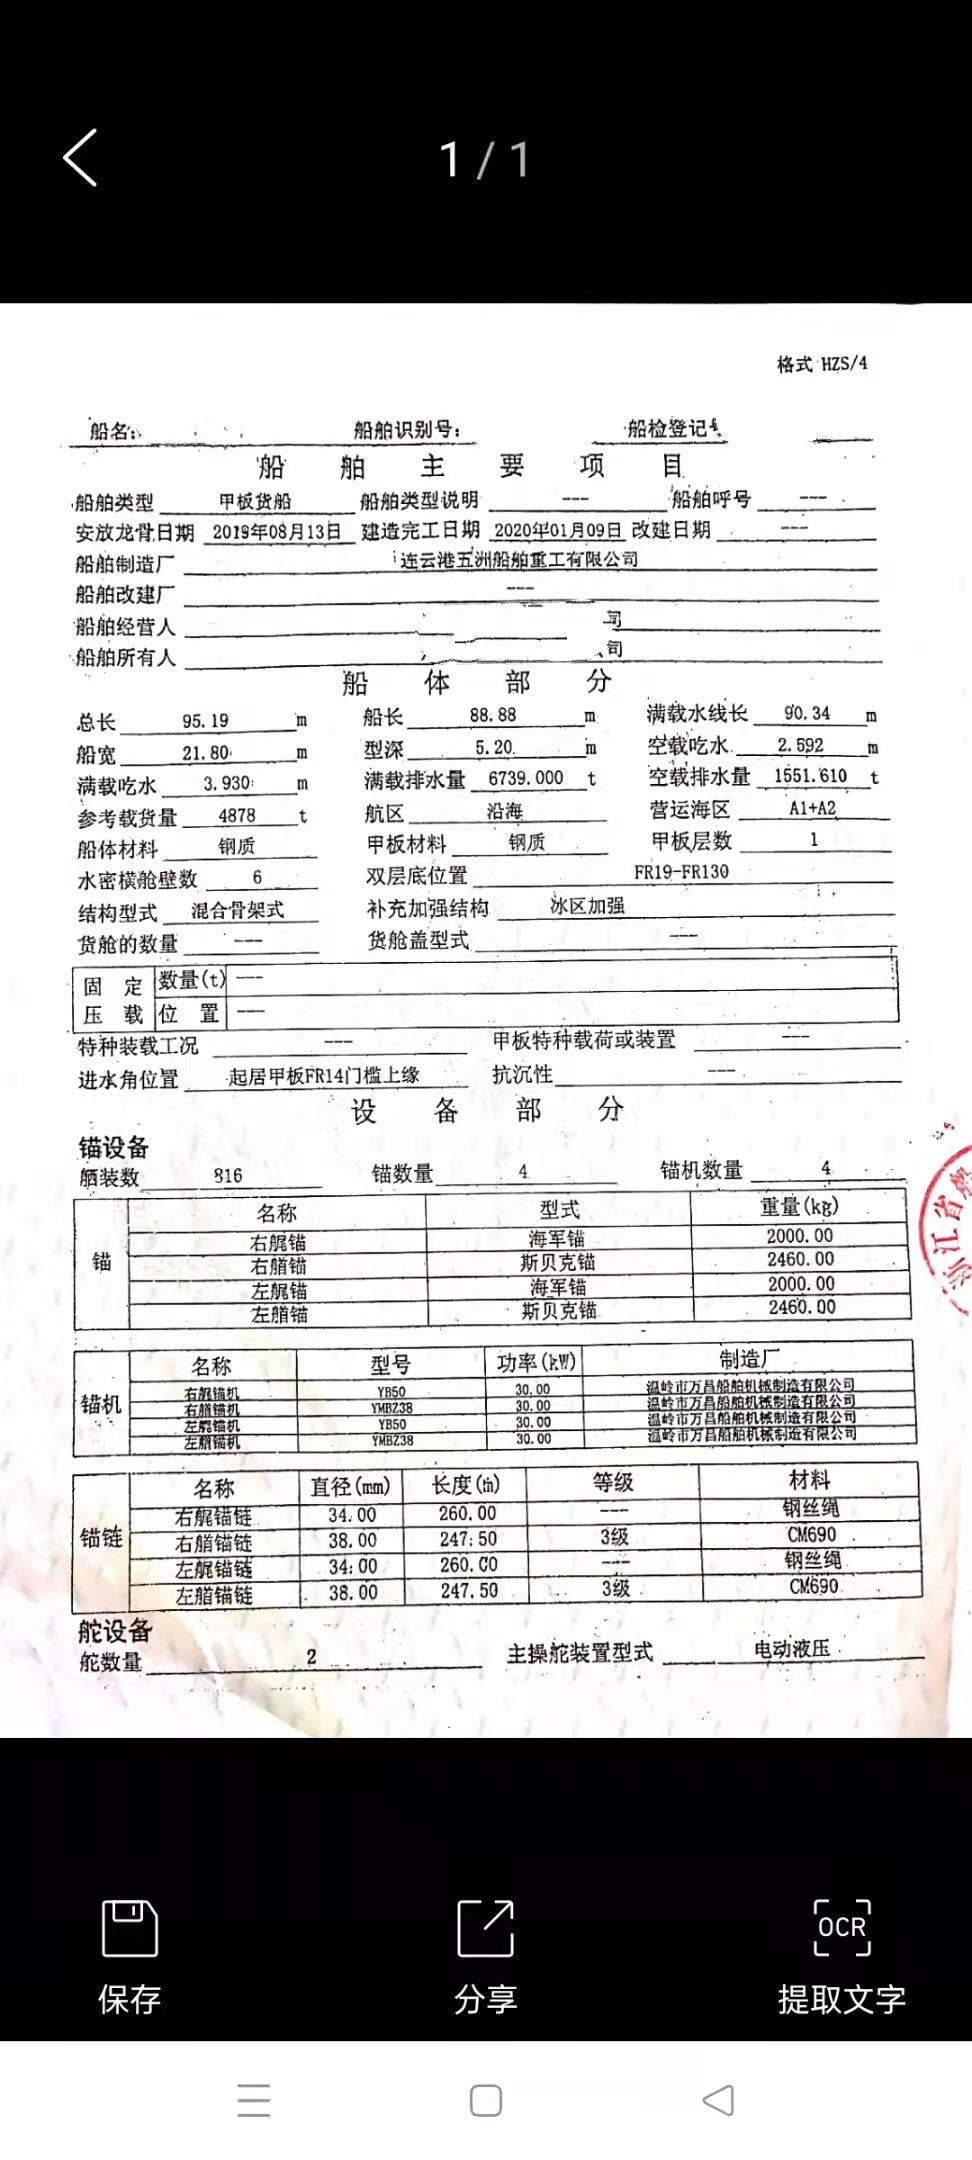 1 / 1
格式 HZS/4
船名: 船舶识别号: 船检登记
船舶主要项目
船舶类型 甲板货船 船舶类型说明 --- 船舶呼号 ---
安放龙骨日期 2019年08月13日 建造完工日期 2020年01月09日 改建日期 ---
船舶制造厂 连云港五洲船舶重工有限公司
船舶改建厂 ---
船舶经营人 司
船舶所有人 司
船体部分
总长 95.19 m 船长 88.88 m 满载水线长 90.34 m
船宽 21.80 m 型深 5.20 m 空载吃水 2.592 m
满载吃水 3.930 m 满载排水量 6739.000 t 空载排水量 1551.610 t
参考载货量 4878 t 航区 沿海 营运海区 A1+A2
船体材料 钢质 甲板材料 钢质 甲板层数 1
水密横舱壁数 6 双层底位置 FR19-FR130
结构型式 混合骨架式 补充加强结构 冰区加强
货舱的数量 --- 货舱盖型式 ---
固定压载 数量(t) ---
位置 ---
特种装载工况 --- 甲板特种载荷或装置 ---
进水角位置 起居甲板FR14门槛上缘 抗沉性 ---
设备部分
锚设备
舾装数 816 锚数量 4 锚机数量 4
锚 名称 型式 重量(kg)
右艉锚 海军锚 2000.00
右艏锚 斯贝克锚 2460.00
左艉锚 海军锚 2000.00
左艏锚 斯贝克锚 2460.00
锚机 名称 型号 功率(kW) 制造厂
右艉锚机 YB50 30.00 温岭市万昌船舶机械制造有限公司
右艏锚机 YMBZ38 30.00 温岭市万昌船舶机械制造有限公司
左艉锚机 YB50 30.00 温岭市万昌船舶机械制造有限公司
左艏锚机 YMBZ38 30.00 温岭市万昌船舶机械制造有限公司
锚链 名称 直径(mm) 长度(m) 等级 材料
右艉锚链 34.00 260.00 --- 钢丝绳
右艏锚链 38.00 247.50 3级 CM690
左艉锚链 34.00 260.00 --- 钢丝绳
左艏锚链 38.00 247.50 3级 CM690
舵设备
舵数量 2 主操舵装置型式 电动液压
浙江省船
保存 分享 OCR
提取文字